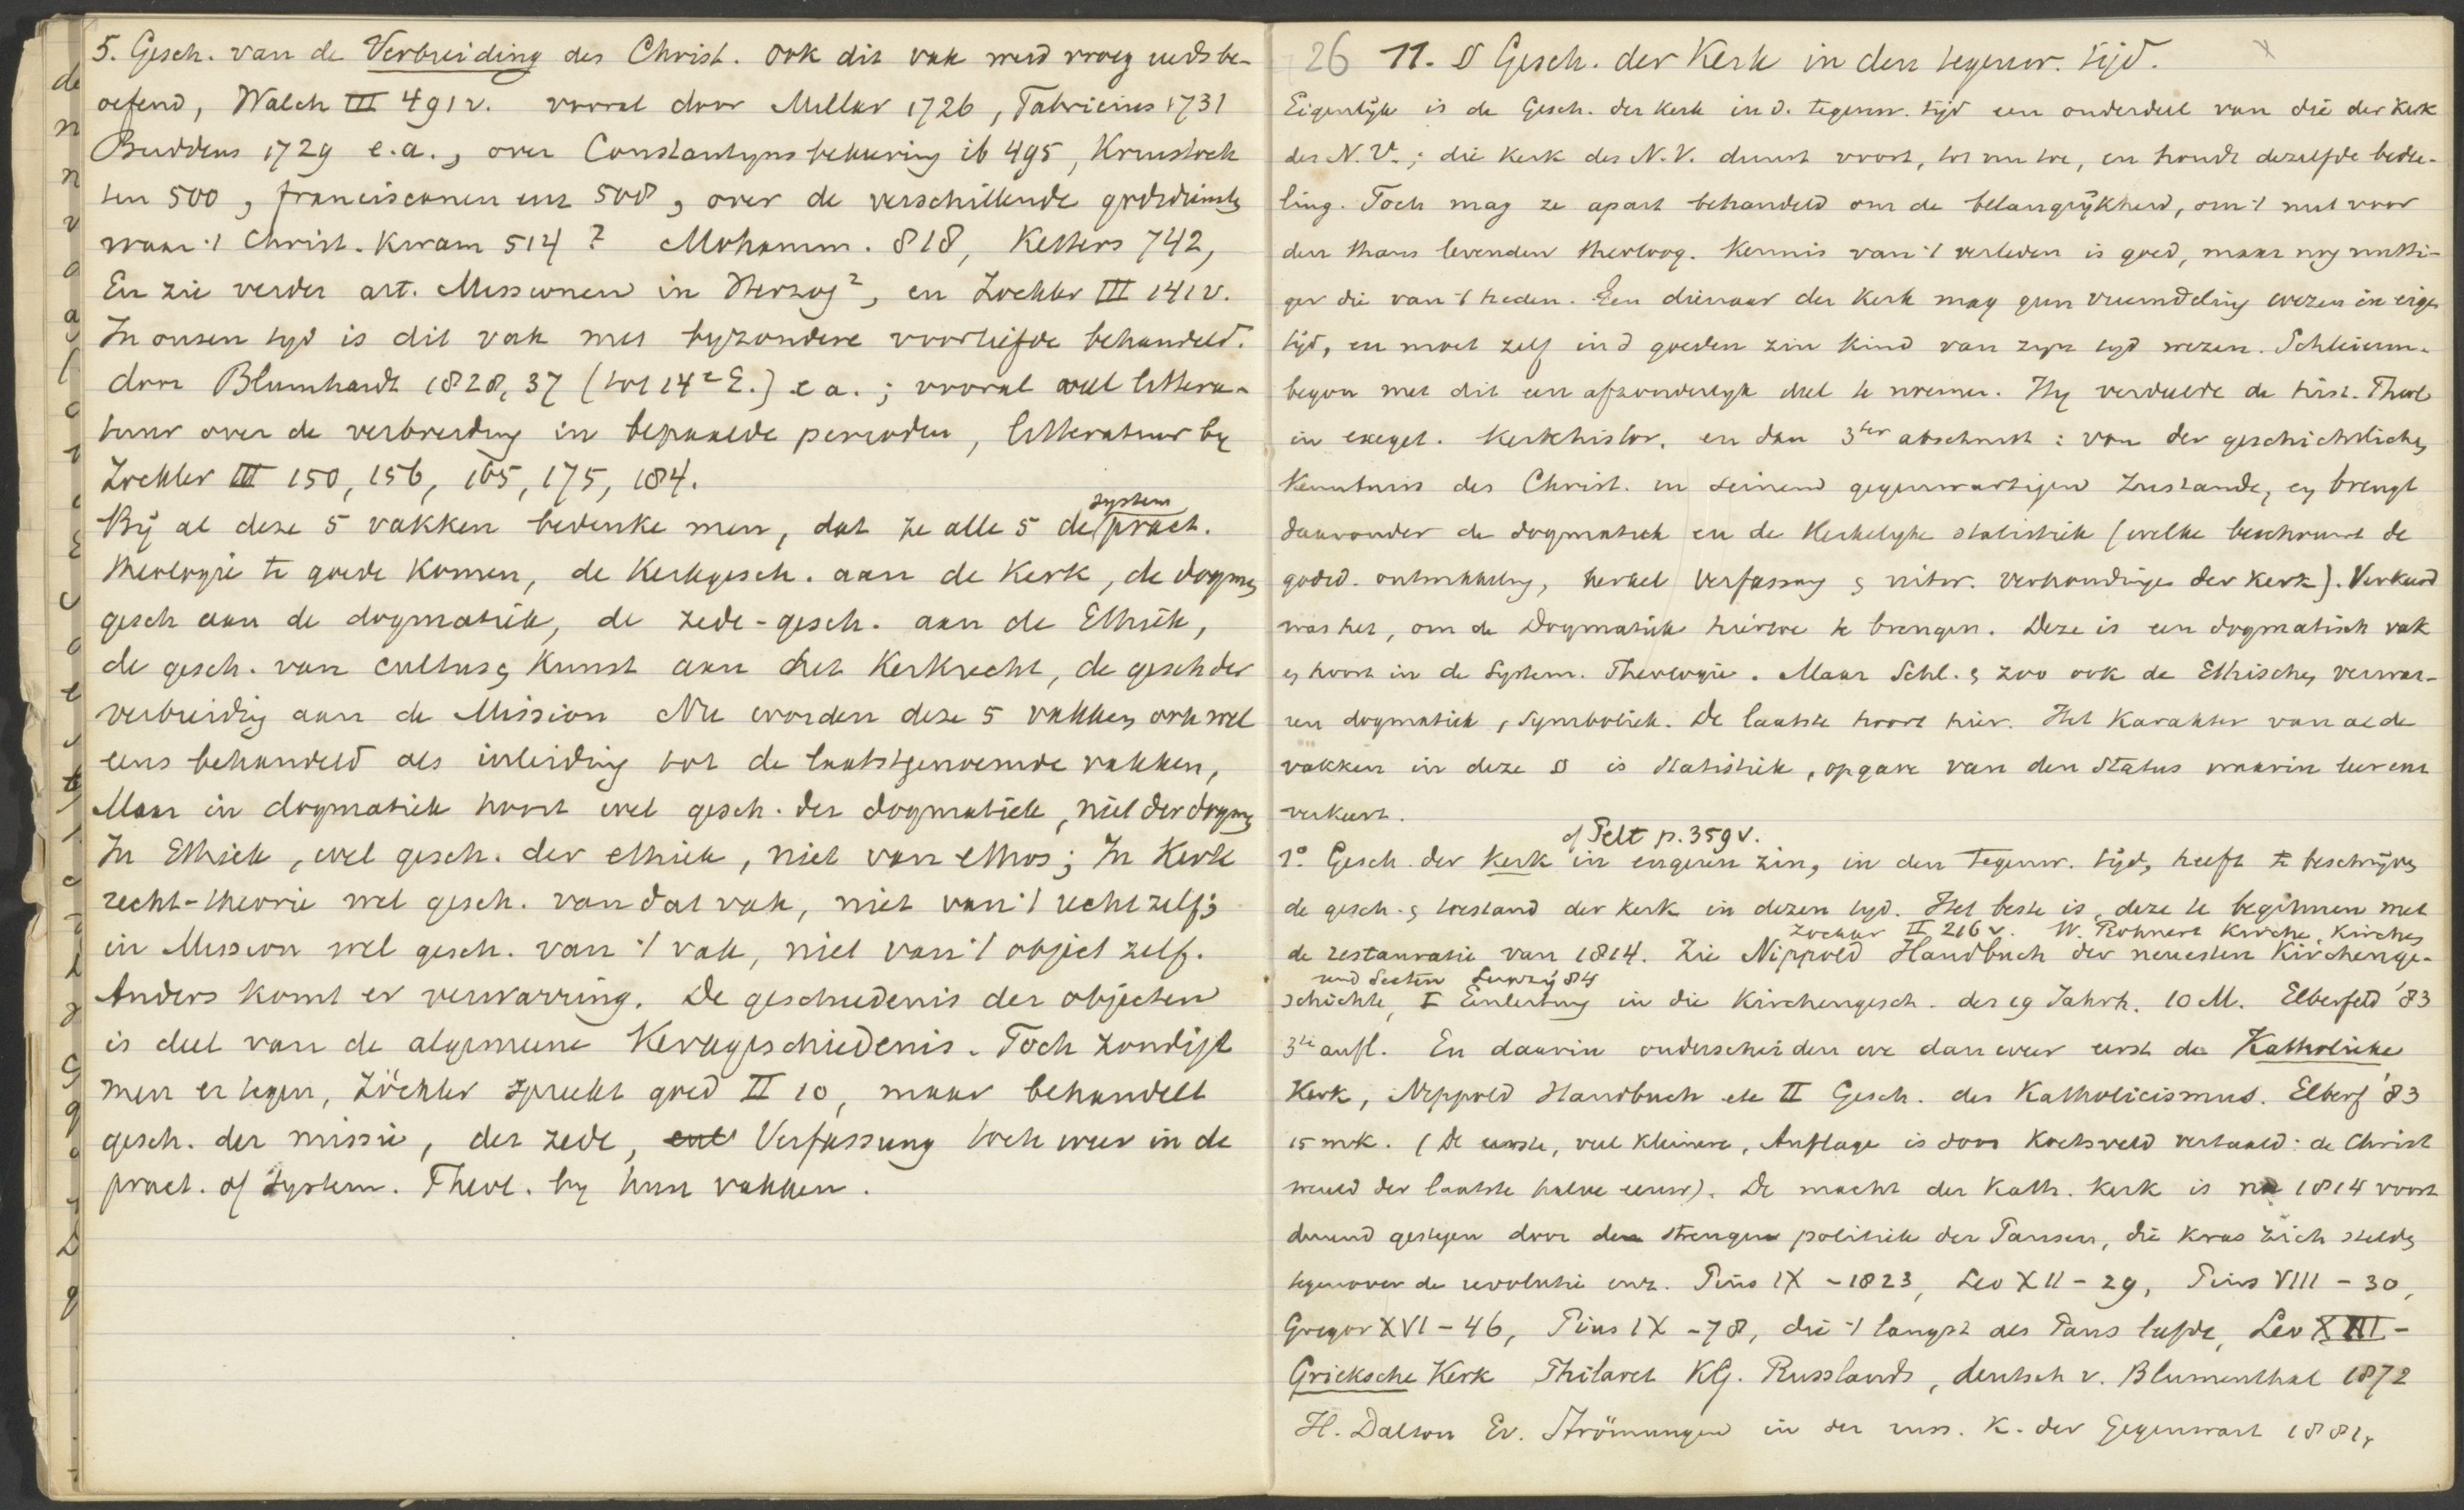 5. Gesch. van de Verbreiding des Christ. Ook dit vak werd vroeg reeds be-
oefend, Walch III 491v. vooral door Millar 1726, Fabricius 1731
Buddeus 1729 e.a., over Constantyns bekeering ib 495, Kruistoch
ten 500, franciscanen enz 508, over de verschillende godsdiensten
waar 't Christ. kwam 514? Mohamm. 818, Ketters 742,
En zie verder art. Missionen in Herzog², en Zockler III 141v.
In onsen tyd is dit vak met byzondere voorliefde behandeld.
door Blumhardt 1828, 37 (tot 14e E.) e a.; vooral veel littera-
tuur over de verbreiding in bepaalde perioden, litteratuur by
Zockler III 150, 156, 165, 175, 184.
system
Bij al deze 5 vakken bedenke men, dat ze alle 5 de pract.
theologie te goede komen, de Kerkgesch. aan de Kerk, de dogmen
gesch aan de dogmatiek, de zede-gesch. aan de Ethiek,
de gesch. van cultus en Kunst aan het Kerkrecht, de gesch der
verbreiding aan de Mission Nu worden deze 5 vakken ook wel
eens behandeld als inleiding tot de laatstgenoemde vakken,
Maar in dogmatiek hoort wel gesch. der dogmatiek, niet der dogmen
In Ethiek, wel gesch. der ethiek, niet van ethos; In Kerk
recht-theorie wel gesch. van dat vak, niet van 't recht zelf;
in Mission wel gesch. van 't vak, niet van 't object zelf.
Anders komt er verwarring. De geschiedenis der objecten
is deel van de algemeene Kerkgeschiedenis. Toch zondigt
men er tegen, Zöckler spreekt goed II 10, maar behandelt
gesch. der missie, der zede, Verfassung toch weer in de
pract. of System. Theol. by hun vakken.
26 11. § Gesch. der Kerk in den tegenw. tijd.
Eigenlijk is de Gesch. der Kerk in d. tegenw. tijd een onderdeel van die der Kerk
des N.V.; die Kerk des N.V. duurt voort, tot nu toe, en houdt dezelfde bedee-
ling. Toch mag ze apart behandeld om de belangrijkheid, om 't nut voor
den thans levenden theoloog. Kennis van 't verleden is goed, maar nog nutti-
ger die van 't heden. Een dienaar der Kerk mag geen vreemdeling wezen in eigen
tijd, en moet zelf in d goeden zin kind van zyn tyd wezen. Schleierm.
begon met dit een afzonderlyk deel te noemen. Hy verdeelde de hist. Theol
in exeget. Kerkhistor. en dan 3ter abschnitt: von der geschichtlichen
Kenntniss des Christ. in seinem gegenwartigen Zustande, en brengt
daaronder de dogmatiek en de Kerkelyke statistiek (welke beschrijft de
godsd. ontwikkeling, kerkel Verfassung en uitw. verhoudingen der Kerk). Verkeerd
was het, om de Dogmatiek hiertoe te brengen. Deze is een dogmatisch vak
en hoort in de System. Theologie. Maar Schl. en zoo ook de Ethischen verwar-
ren dogmatiek, Symboliek. De laatste hoort hier. Het Karakter van al de
vakken in deze § is statistiek, opgave van den Status waarin leer enz
verkeert.
cf Pelt p. 359v.
1º. Gesch. der Kerk in engeren zin, in den tegenw. tijd, heeft te beschrijven
de gesch. en toestand der Kerk in dezen tyd. Het beste is deze te beginnen met
Zockler II 216v. W. Rohnert Kirche, Kirchen
de restauratie van 1814. Zie Nippold Handbuch der neuesten Kirchenge-
und Secten Leipzig 84
schichte, I Einleitung in die Kirchengesch. des 19 Jahrh. 10 M. Elberfeld '83
3te aufl. En daarin onderscheiden we dan weer eerst de Katholieke
Kerk, Nippold Handbuch etc II Gesch. des Katholicismus. Elberf '83
15 mk. (De eerste, veel kleinere, Auflage is door Koetsveld vertaald: de Christ
wereld der laatste halve eeuw). De macht der Kath. Kerk is na 1814 voort
durend gestegen door de strengen politiek der Pausen, die kras zich stelden
tegenover de revolutie enz. Pius IX -1823, Leo XII - 29, Pius VIII - 30,
Gregor XVI - 46, Pius IX -78, die 't langst als Paus leefde, Leo XIII -
Grieksche Kerk Philaret KG. Russlands, deutsch v. Blumenthal 1872
H. Dalton Ev. Strömungen in der russ. K. der Gegenwart 1881,